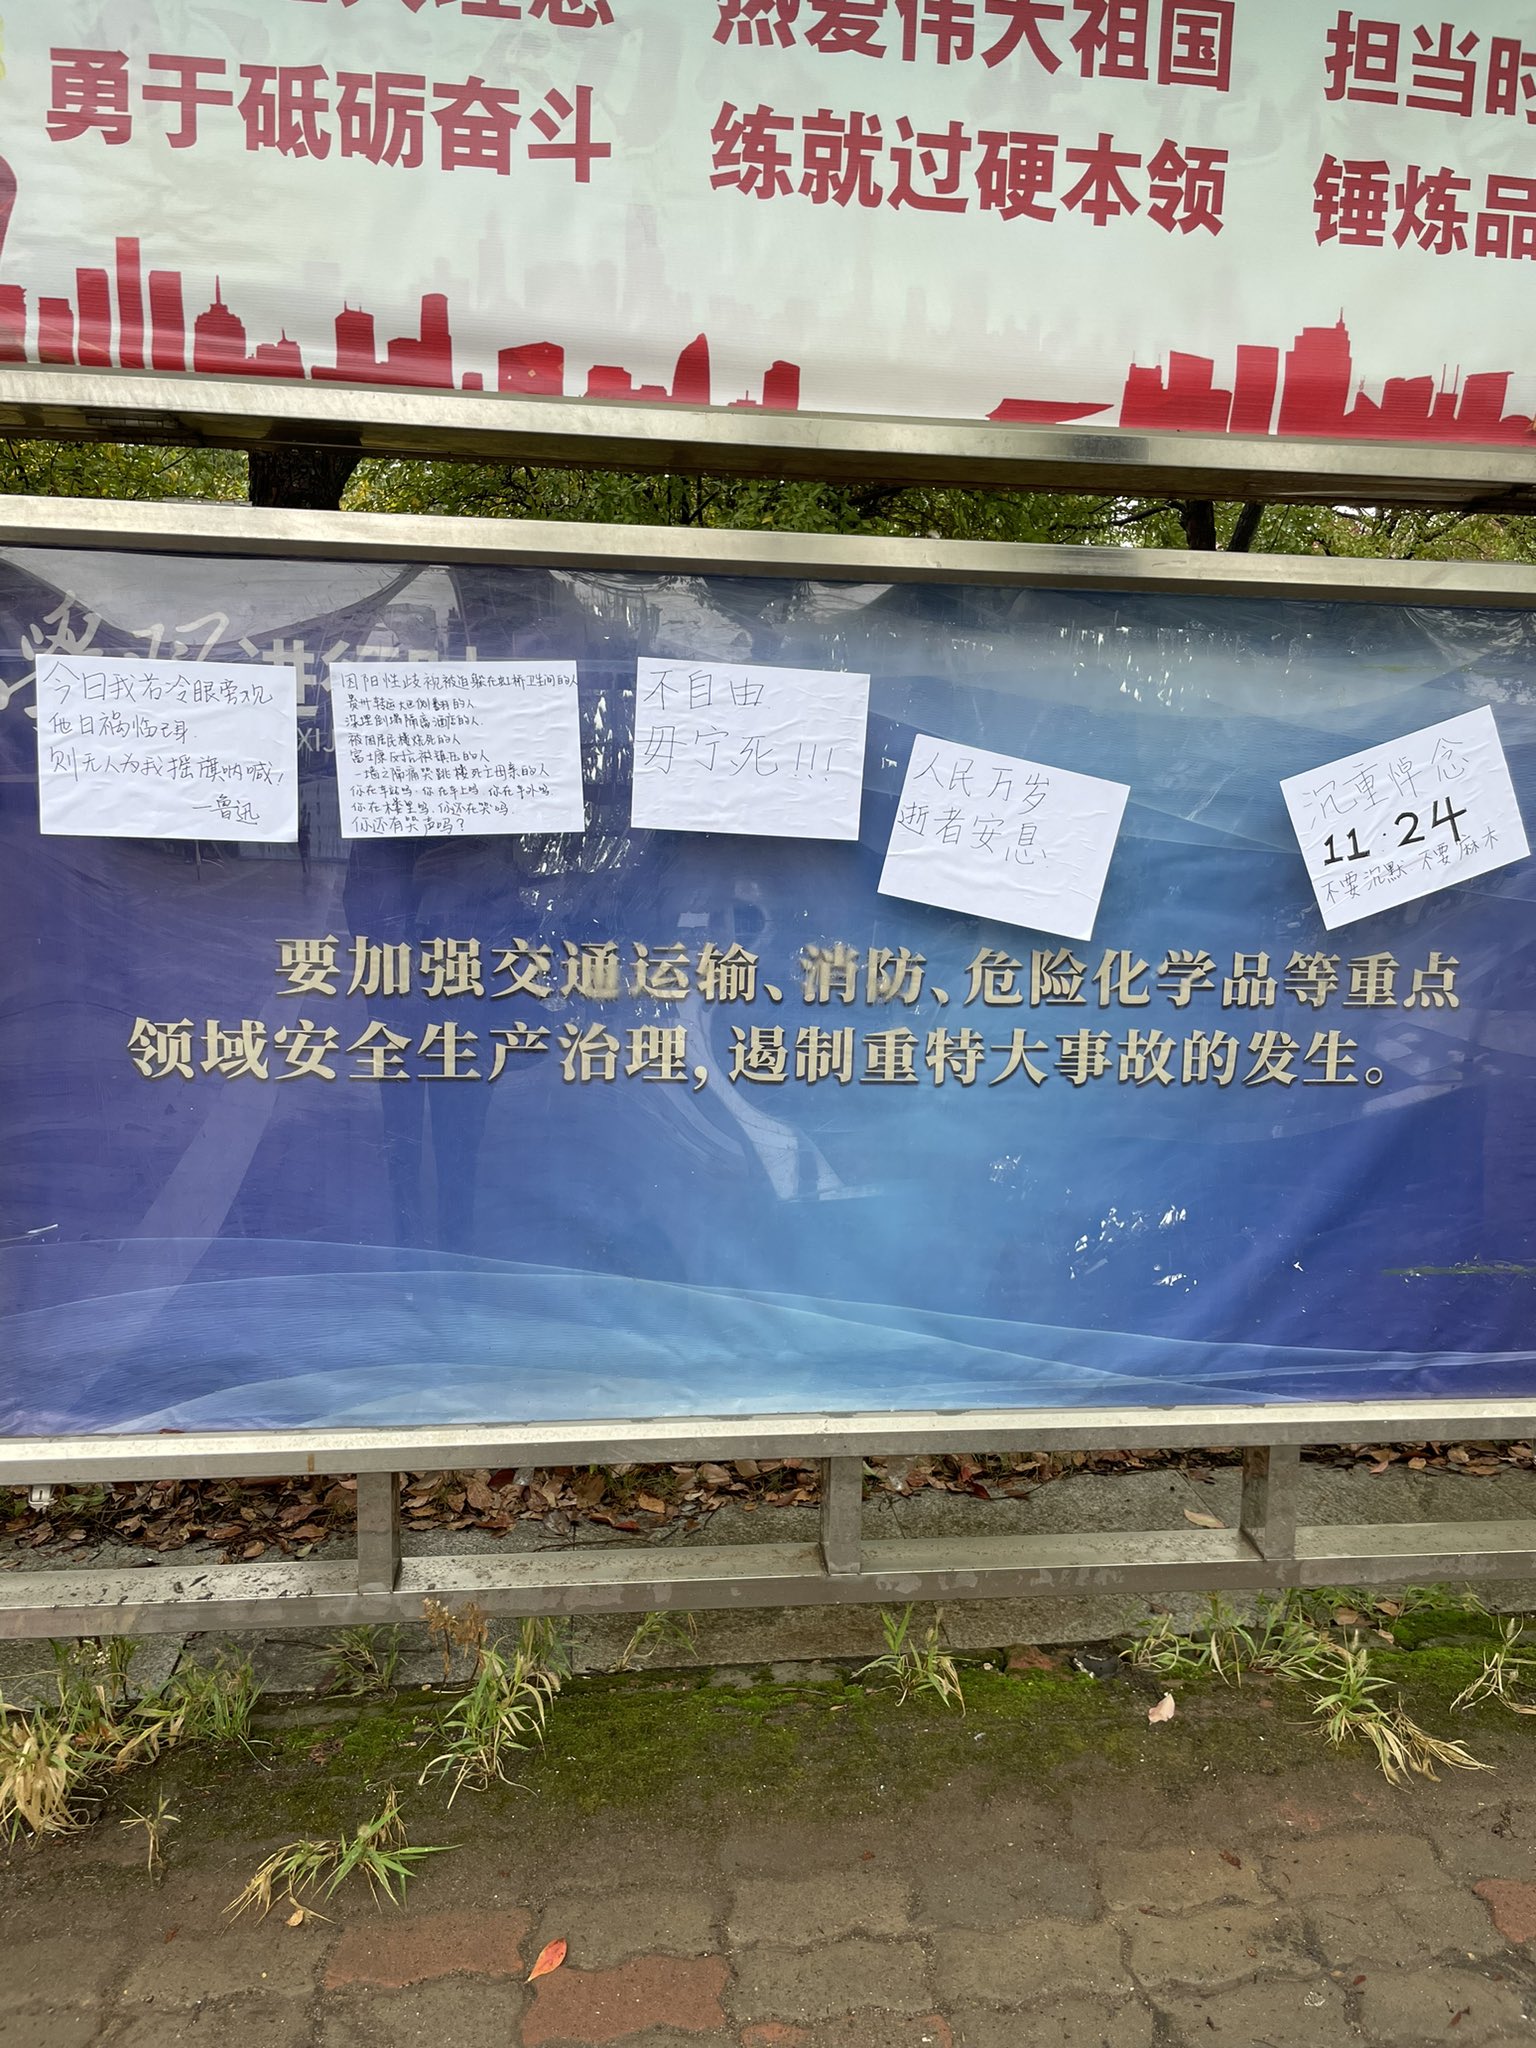 热爱伟大祖国
担当时
勇于砥砺奋斗
练就过硬本领
锤炼品
今日我若冷眼旁观
他日祸临己身
则无人为我摇旗呐喊!
—鲁迅
因阳性歧视被迫躲在虹桥卫生间的人
贵州转运大巴侧翻的人
深埋倒塌隔离酒店的人
被困居民楼烧死的人
富士康反抗被镇压的人
一墙之隔痛哭跳楼死亡母亲的人
你在车站吗.你在车上吗.你在车外吗.
你在楼里吗.你还在哭吗.
你还有哭声吗?
不自由
毋宁死!!!
人民万岁
逝者安息!
沉重悼念
11:24
不要沉默 不要麻木
要加强交通运输、消防、危险化学品等重点
领域安全生产治理,遏制重特大事故的发生。